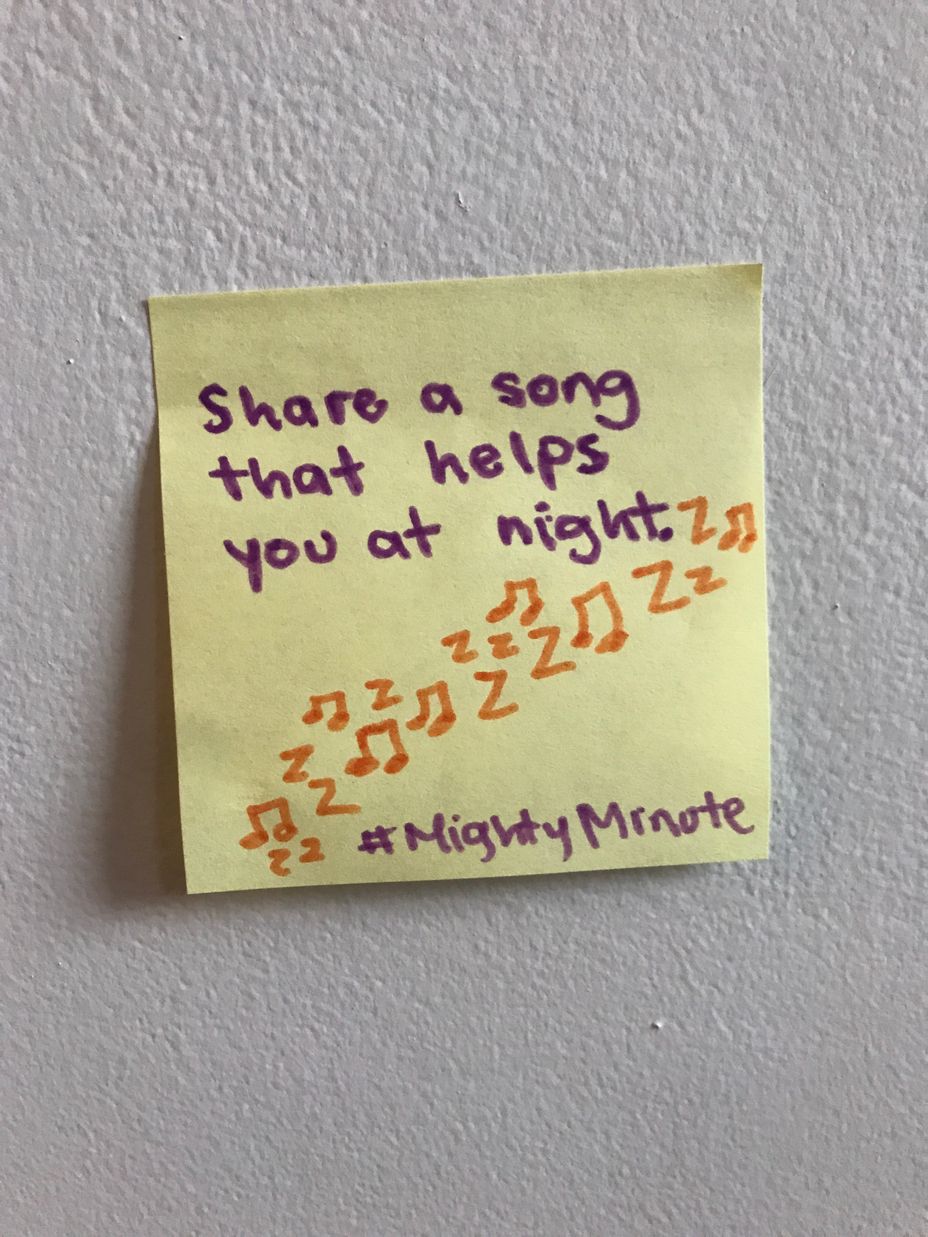 Share a song
that helps
you at night. Z♫
♫ Z z
z z Z ♫
♫ z ♫ Z
z ♫
♫ Z
z z #MightyMinute